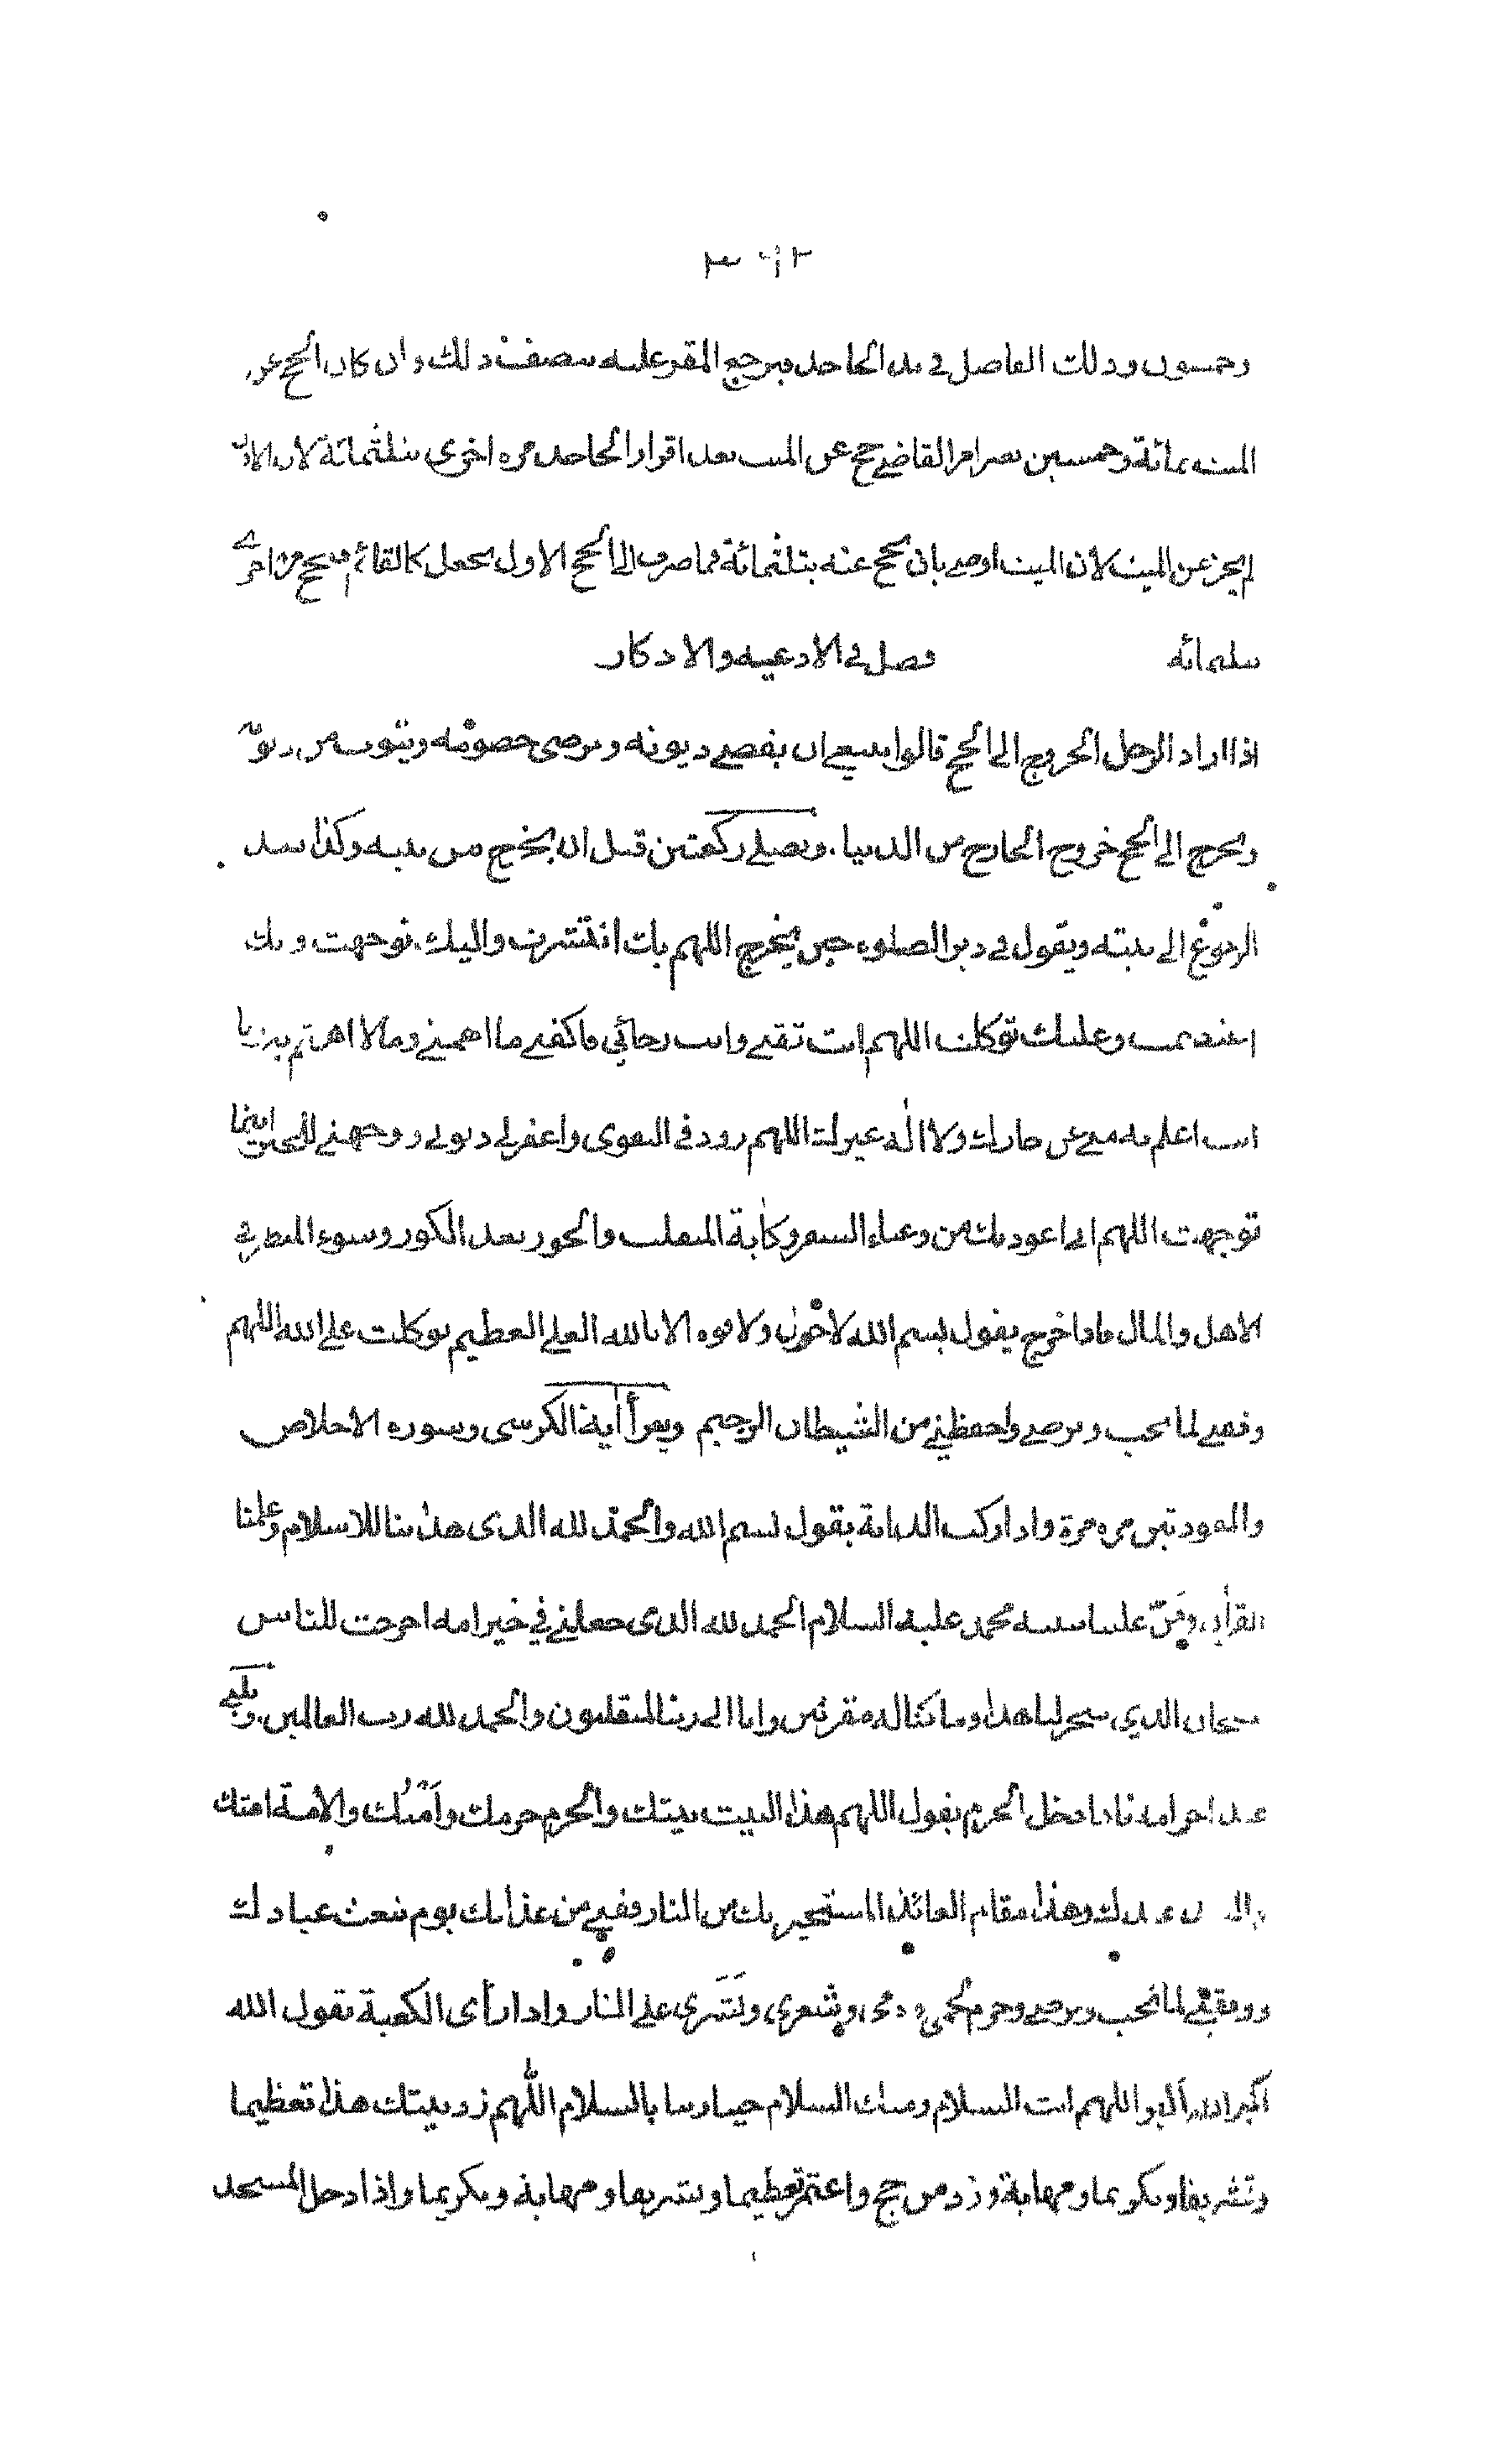 وخمسون وذلك الفاضل في يد الجاحد فيرجع المقر عليه بنصف ذلك وان كان الحج عن
الميت بمائة وخمسين بغير امر القاضي حج عن الميت بعد اقرار الجاحد مرة اخرى بثلثمائة لان الاول
لم يجز عن الميت لان الميت اوصى بان يحج عنه بثلثمائة فما صرف الى الحج الاول يجعل كالقائم فيحج مرة اخرى
بثلثمائة
فصل في الادعية والاذكار
اذا اراد الرجل الخروج الى الحج قالوا ينبغي ان يقضي ديونه ويرضى خصومه ويتوب من ذنوبه
ويخرج الى الحج خروج الخارج من الدنيا ويصلي ركعتين قبل ان يخرج من بيته وكذا بعد
الرجوع الى بيته ويقول في دبر الصلوة حين يخرج اللهم بك انتشرت واليك توجهت وبك
اعتصمت وعليك توكلت اللهم انت ثقتي وانت رجائي فاكفني ما اهمني وما لا اهتم به وما
انت اعلم به مني عز جارك ولا اله غيرك اللهم زودني التقوى واغفر لي ذنوبي ووجهني للخير اينما
توجهت اللهم اني اعوذ بك من وعثاء السفر وكآبة المنقلب والحور بعد الكور وسوء المنظر في
الاهل والمال فاذا خرج يقول بسم الله لا حول ولا قوة الا بالله العلي العظيم توكلت على الله اللهم
وفقني لما تحب وترضى واحفظني من الشيطان الرجيم ويقرأ آية الكرسي وسورة الاخلاص
والمعوذتين مرة مرة واذا ركب الدابة يقول بسم الله والحمد لله الذي هدانا للاسلام وعلمنا
القرآن ومَنّ علينا بنبيه محمد عليه السلام الحمد لله الذي جعلني في خير امة اخرجت للناس
سبحان الذي سخر لنا هذا وما كنا له مقرنين وانا الى ربنا لمنقلبون والحمد لله رب العالمين ويلبي
عند احرامه فاذا دخل الحرم يقول اللهم هذا البيت بيتك والحرم حرمك وآمنك والامة امتك
عبدك وهذا مقام العائذ المستجير بك من النار فقني من عذابك يوم تبعث عبادك
ووفقني لما تحب وترضى وحرم لحمي ودمي وشعري وبَشَري على النار واذا رأى الكعبة يقول الله
اكبر الله اكبر اللهم انت السلام ومنك السلام حينا ربنا بالسلام اللهم زد بيتك هذا تعظيما
وتشريفا وتكريما ومهابة وزد من حج واعتمر تعظيما وتشريفا ومهابة وتكريما واذا دخل المسجد